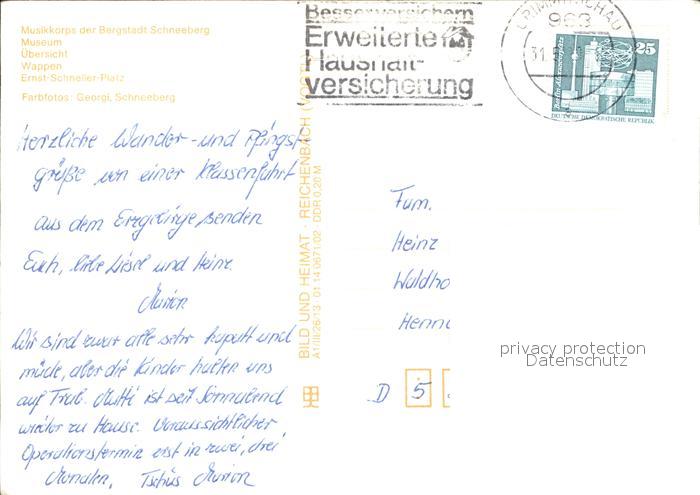 Musikkorps der Bergstadt Schneeberg
Museum
Übersicht
Wappen
Ernst-Schneller-Platz
Farbfotos: Georgi, Schneeberg
Besserversichern
Erweiterte
Haushalt-
versicherung
CRIMMITSCHAU
963
31.
25
Berlin-Alexanderplatz
DEUTSCHE DEMOKRATISCHE REPUBLIK
Herzliche Wander- und Pfingst
grüße von einer Klassenfahrt
aus dem Erzgebirge senden
Euch, liebe Liesel und Heinz
Marion
Wir sind zwar alle sehr kaputt und
müde, aber die Kinder halten uns
auf Trab. Mutti ist seit Sonnabend
wieder zu Hause. Voraussichtlicher
Operationstermin erst in zwei, drei
Monaten. Tschüs Marion
BILD UND HEIMAT · REICHENBACH
A1/III/26/13 · 01 14 0671/02 DDR 0,20 M
Fam.
Heinz
Waldho
Henn
D 5
privacy protection
Datenschutz